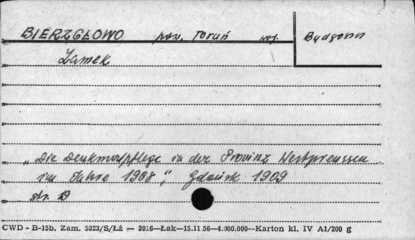 BIERZGŁOWO pow. Toruń woj. Bydgoszcz
Zamek
„Die Denkmalpflege in der Provinz Westpreussen
im Jahre 1908", Gdańsk 1909
str. 19
CWD - B-15b. Zam. 5823/S/Łż — 3016—Łak—15.11 56—4.000.000—Karton kl. IV A1/200 g